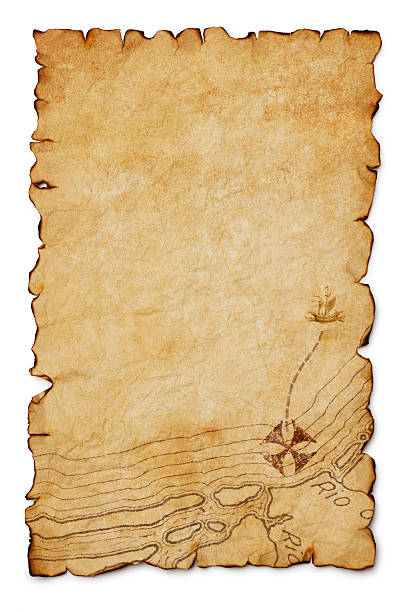 RIO
RIO